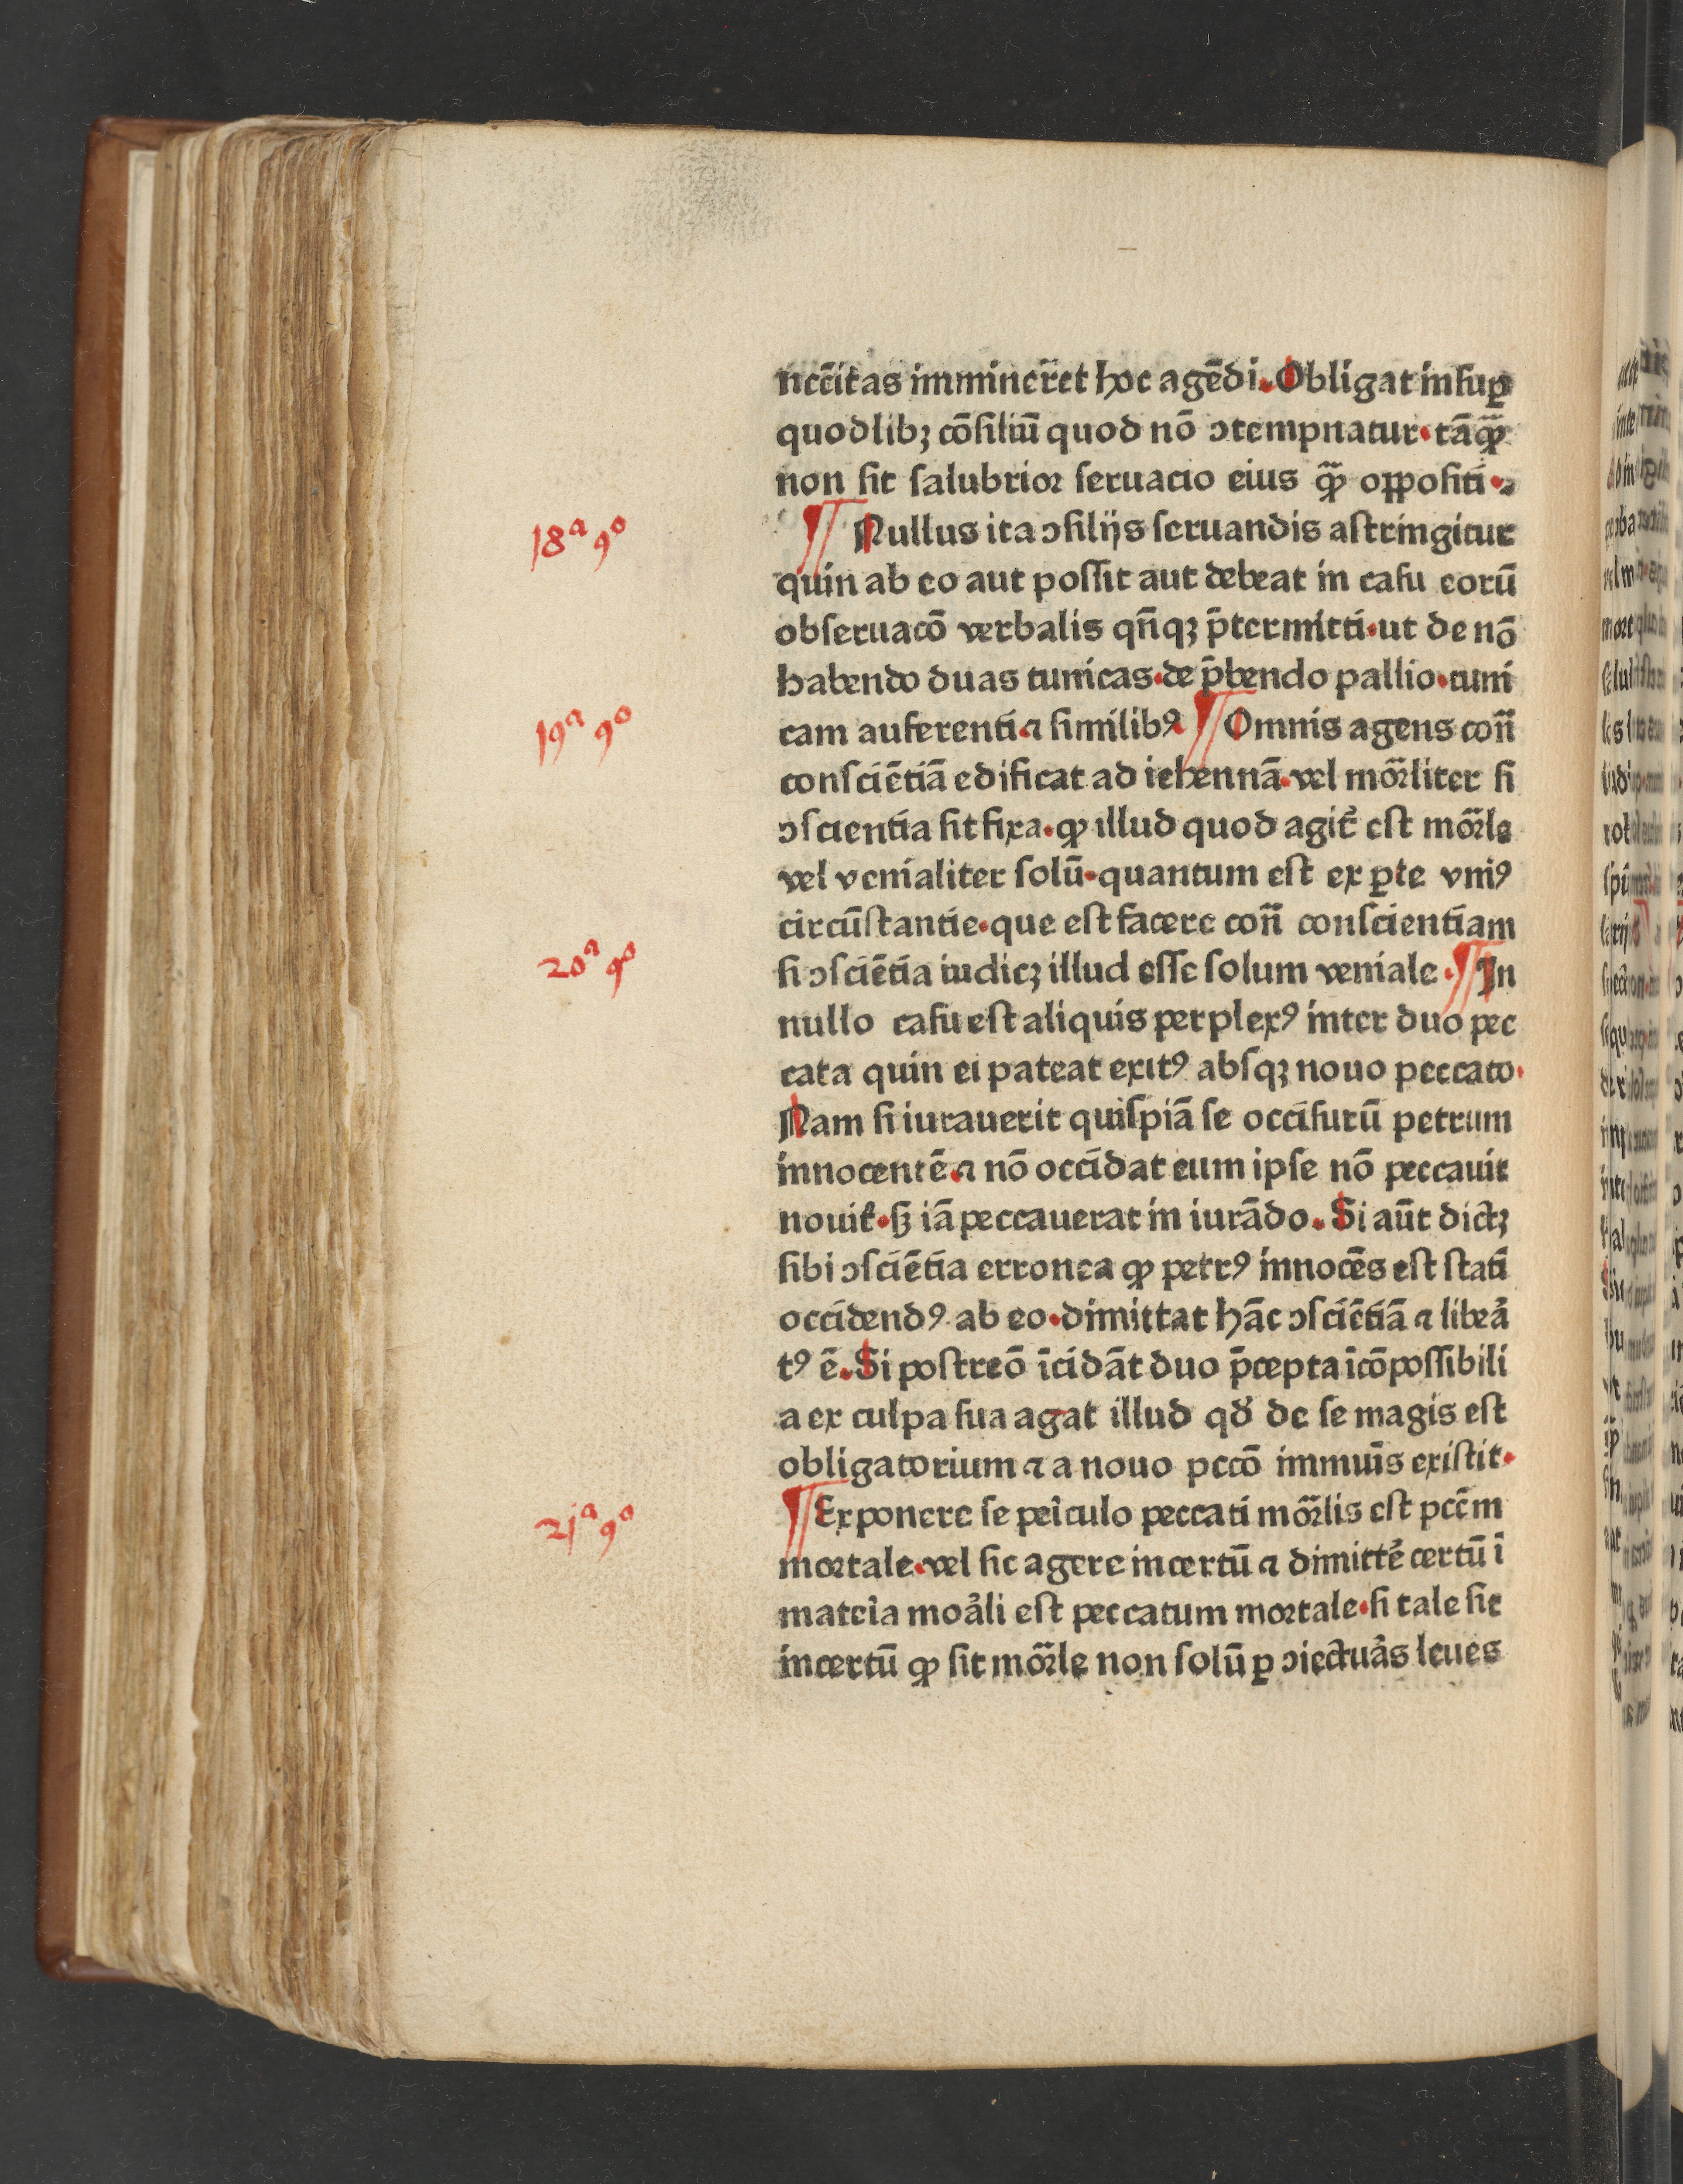 nccĩtas immineret̃ hoc agēdi. Obligat insuꝑ
quodlibꝫ cōsiliū quod nō ↄtempnatur. tāꝙ̃
non sit salubrior seruacio eius ꝙ̃ oꝓositi. ꝛ
18ᵃ 9ᵒ
¶ Nullus ita ↄsilijs seruandis astringitur
quin ab eo aut possit aut debeat in casu eorū
obseruacō verbalis qñqꝫ p̄termitti. ut de nō
habendo duas tunicas. de p̄bendo pallio. tuni
19ᵃ 9ᵒ
cam auferenti. ⁊ similibꝰ ¶ Omnis agens coñ
consciētiā edificat ad iehennā. vel mor̃liter si
ↄscientia sit fixa. ꝙ illud quod agit᷑ est mor̃le
vel venialiter solū. quantum est ex ꝑte vniꝰ
circūstantie. que est facere coñ conscientiam
20ᵃ 9ᵒ
si ↄsciētia iudicꝫ illud esse solum veniale. ¶ In
nullo casu est aliquis perplexꝰ inter duo pec
cata quin ei pateat exitꝰ absqꝫ nouo peccato.
Nam si iurauerit quispiā se occisurū petrum
innocentē. ⁊ nō occidat eum ipse nō peccauit
nouit᷑. sꝫ iā peccauerat in iurādo. Si aūt dictꝫ
sibi ↄsciētia erronea ꝙ petrꝰ innocēs est statī
occidendꝰ ab eo. dimittat hāc ↄsciētiā ⁊ libea᷑
tꝰ ē. Si postreō īcidāt duo p̄cepta īcōpossibili
a ex culpa sua agat illud qd̛ de se magis est
obligatorium ⁊ a nouo pccō immuīs existit.
21ᵃ 9ᵒ
¶ Exponere se peic̍ulo peccati mor̃lis est pccm̄
mortale. vel sic agere incertū ⁊ dimitte᷑ certū ī
matei̍a moa᷑li est peccatum mortale. si tale sit
incertū ꝙ sit mor̃le non solū ꝑ ↄiectua᷑s leues